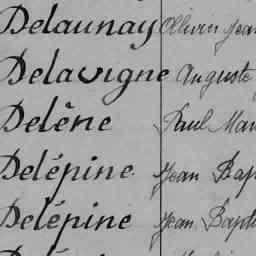 Delaunay Ollivier Jean
Delavigne Auguste
Delêne Paul Mau
Delépine Jean Bap
Delépine Jean Bapti